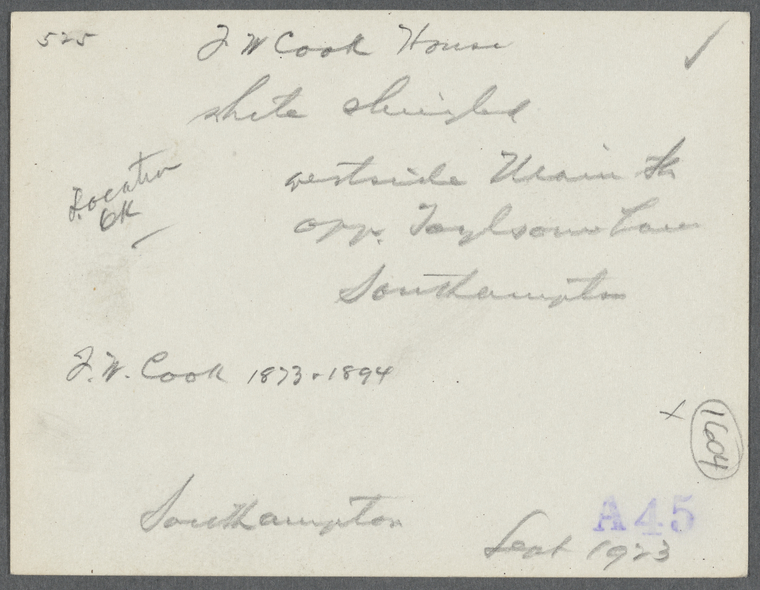 525
J W Cook House
white shingled
westside Main St
opp. Toylsome Lane
Southampton
Location
OK
J. W. Cook 1873 + 1894
x 1604
A45
Southampton
Sept 1923